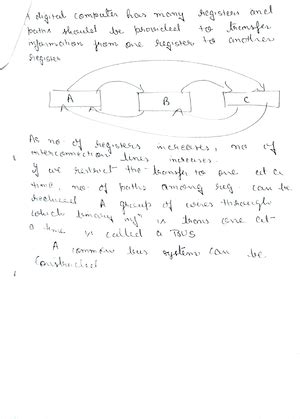 A digital computer has many registers and
paths should be provided to transfer
information from one register to another
register
A B C
As no of registers increases, no of
interconnection lines increases.
If we restrict the transfer to one at a
time, no. of paths among reg can be
reduced A group of wires through
which binary infn is trans one at
a time is called a BUS
A common bus system can be
Constructed